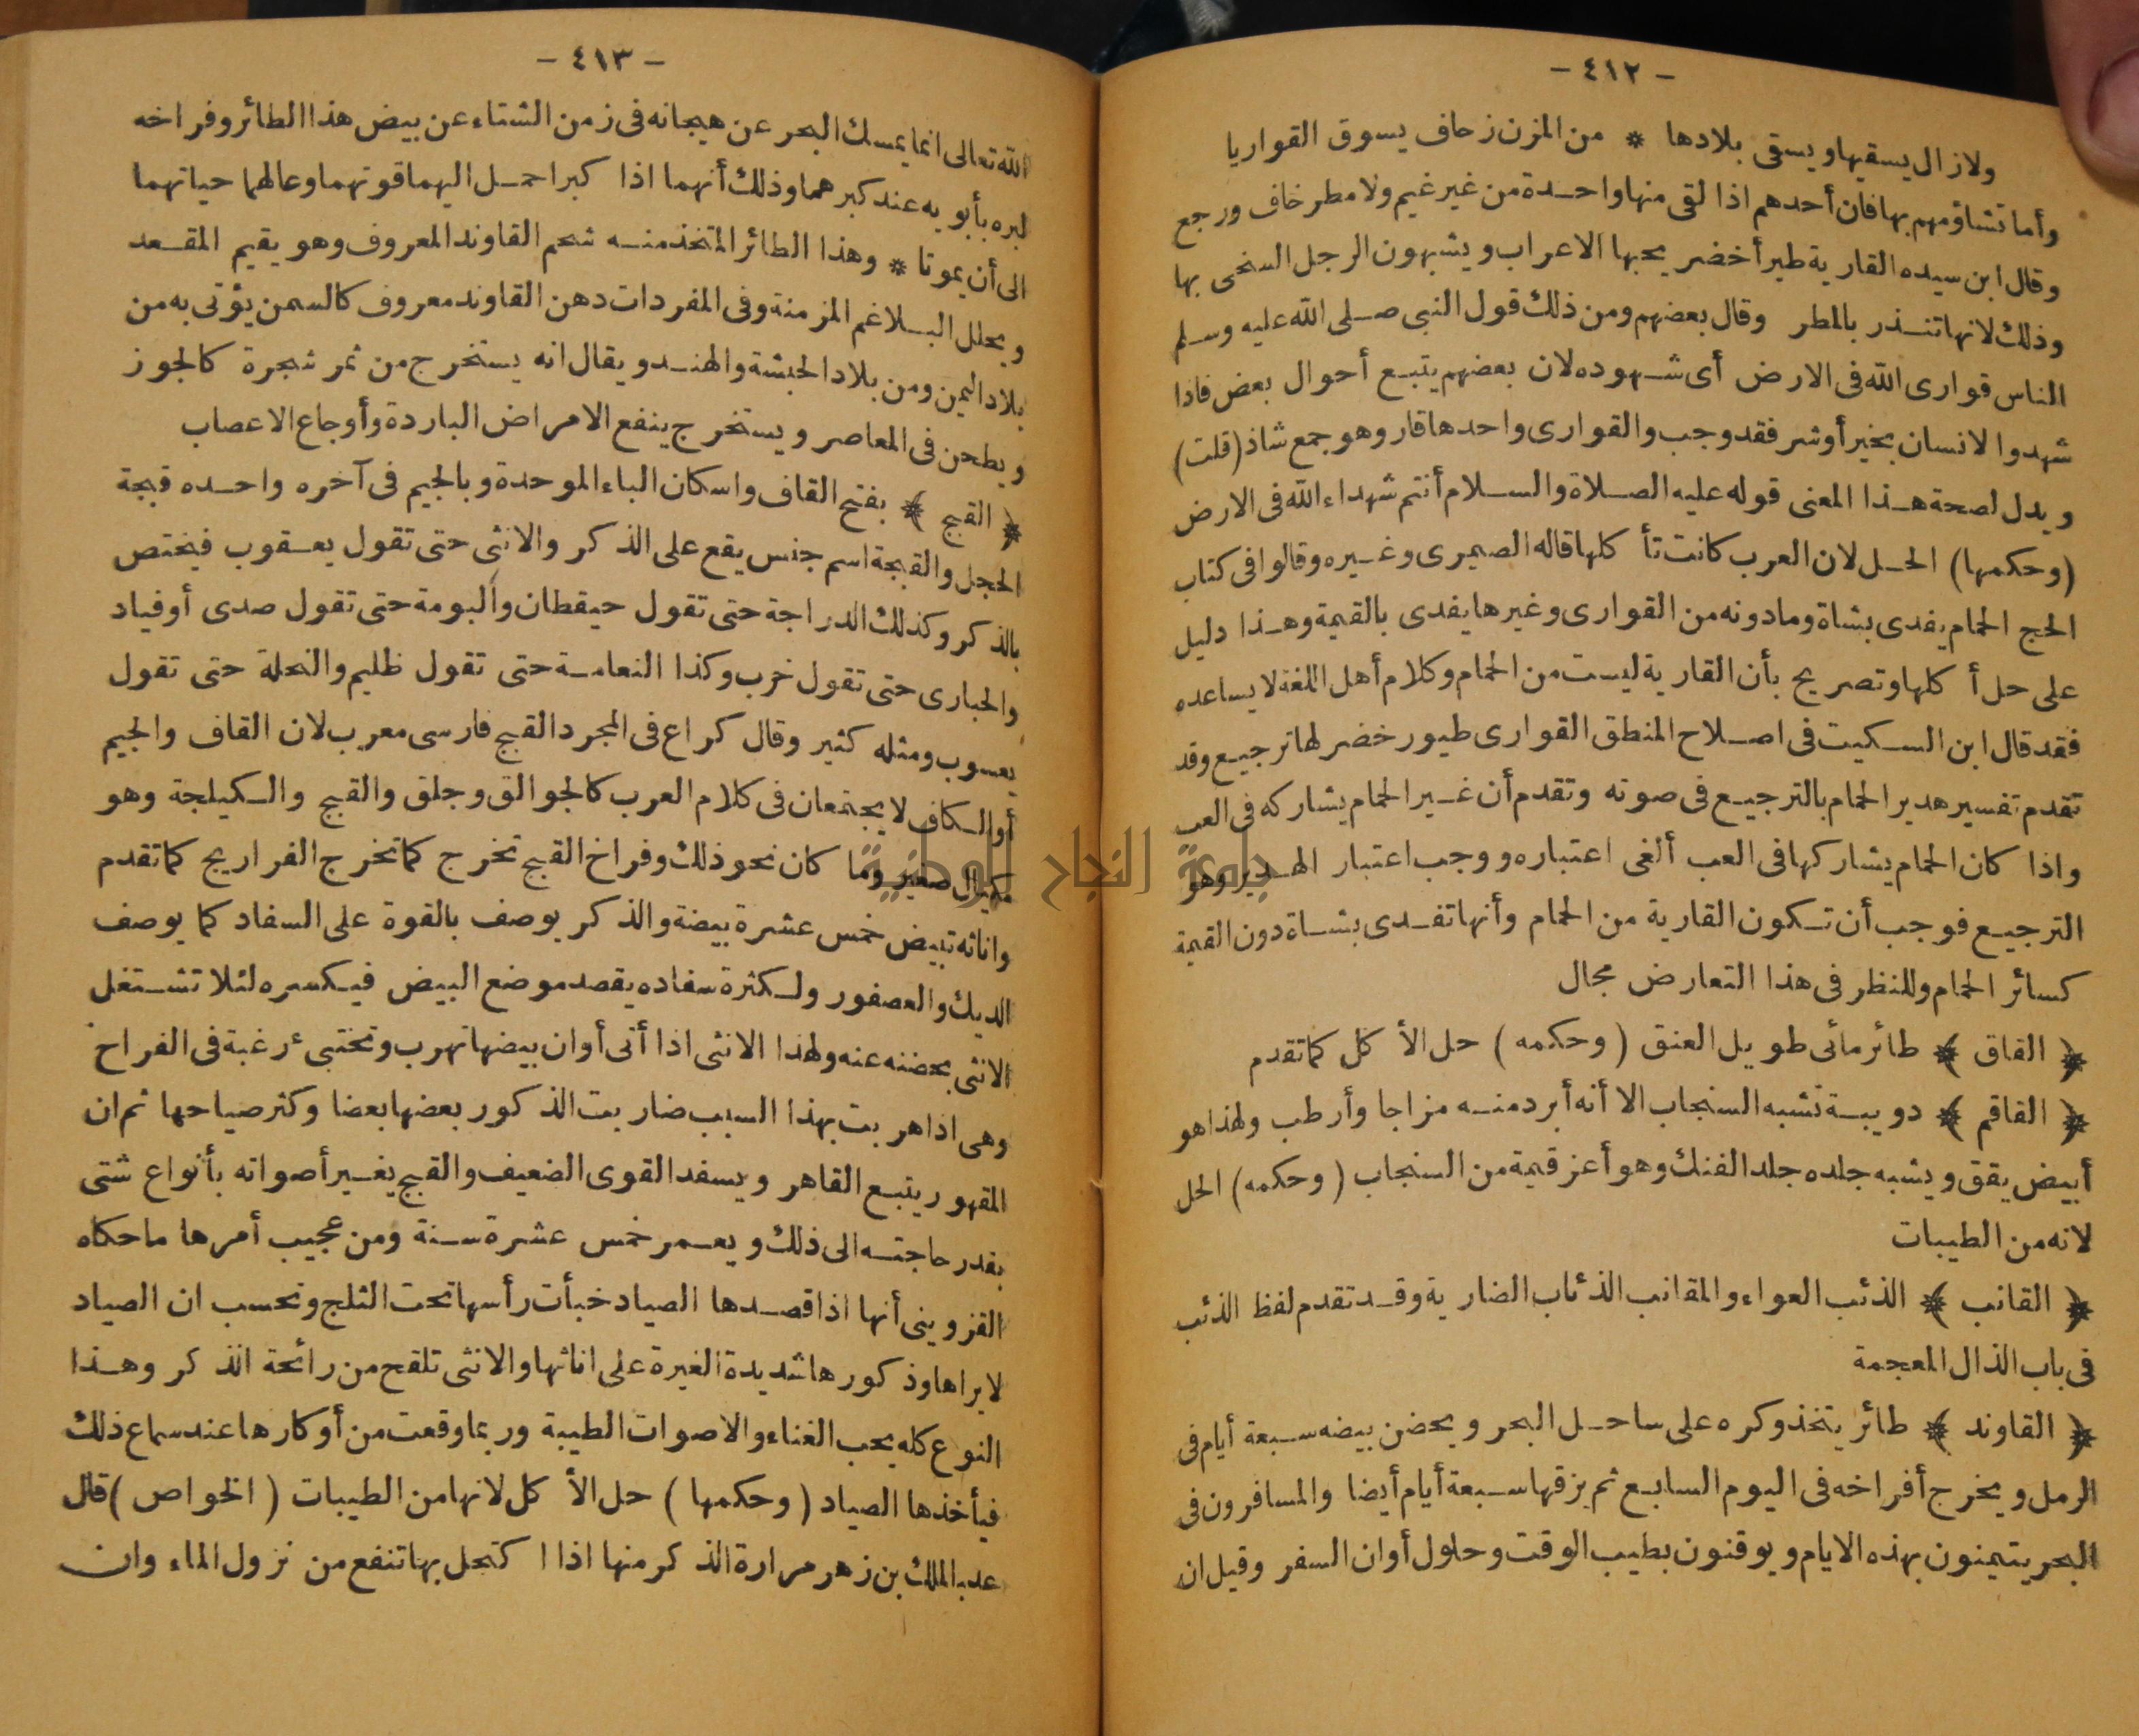 – ٤١٢ –
ولازال يسقيها ويسقى بلادها * من المزن زحاف يسوق القواريا
وأما تشاؤمهم بها فان أحدهم اذا لقى منها واحدة من غير غيم ولا مطر خاف ورجع
وقال ابن سيده القارية طير أخضر يحبها الاعراب ويشبهون الرجل السخى بها
وذلك لانها تنذر بالمطر وقال بعضهم ومن ذلك قول النبى صلى الله عليه وسلم
الناس قوارى الله فى الارض أى شهوده لان بعضهم يتبع أحوال بعض فاذا
شهدوا لانسان بخير أو شر فقد وجب والقوارى واحدها قار وهو جمع شاذ (قلت)
ويدل لصحة هذا المعنى قوله عليه الصلاة والسلام أنتم شهداء الله فى الارض
(وحكمها) الحل لان العرب كانت تأكلها قاله الصيمرى وغيره وقالوا فى كتاب
الحج الحمام يفدى بشاة وما دونه من القوارى وغيرها يفدى بالقيمة وهذا دليل
على حل أكلها وتصريح بأن القارية ليست من الحمام وكلام أهل اللغة لا يساعده
فقد قال ابن السكيت فى اصلاح المنطق القوارى طيور خضر لها ترجيع وقد
تقدم تفسير هدير الحمام بالترجيع فى صوته وتقدم أن غير الحمام يشاركه فى العب
واذا كان الحمام يشاركها فى العب ألغى اعتباره ووجب اعتبار الهدير وهو
الترجيع فوجب أن تكون القارية من الحمام وأنها تفدى بشاة دون القيمة
كسائر الحمام وللنظر فى هذا التعارض مجال
﴿ القاق ﴾ طائر مائى طويل العنق (وحكمه) حل الأكل كما تقدم
﴿ القاقم ﴾ دويبة تشبه السنجاب الا أنه أبرد منه مزاجا وأرطب ولهذا هو
أبيض يقق ويشبه جلده جلد الفنك وهو أعز قيمة من السنجاب (وحكمه) الحل
لانه من الطيبات
﴿ القانب ﴾ الذئب العواء والمقانب الذئاب الضارية وقد تقدم لفظ الذئب
فى باب الذال المعجمة
﴿ القاوند ﴾ طائر يتخذ وكره على ساحل البحر ويحضن بيضه سبعة أيام فى
الرمل ويخرج أفراخه فى اليوم السابع ثم يزقها سبعة أيام أيضا والمسافرون فى
البحر يتيمنون بهذه الايام ويوقنون بطيب الوقت وحلول أوان السفر وقيل ان
– ٤١٣ –
الله تعالى انما يمسك البحر عن هيجانه فى زمن الشتاء عن بيض هذا الطائر وفراخه
لبره بأبويه عند كبرهما وذلك أنهما اذا كبرا حمل اليهما قوتهما وعالهما حياتهما
الى أن يموتا * وهذا الطائر المتخذ منه شحم القاوند المعروف وهو يقيم المقعد
ويحلل البلاغم المزمنة وفى المفردات دهن القاوند معروف كالسمن يؤتى به من
بلاد اليمن ومن بلاد الحبشة والهند ويقال انه يستخرج من ثمر شجرة كالجوز
ويطحن فى المعاصر ويستخرج ينفع الامراض الباردة وأوجاع الاعصاب
﴿ القبج ﴾ بفتح القاف واسكان الباء الموحدة وبالجيم فى آخره واحده قبجة
الحجل والقبجة اسم جنس يقع على الذكر والانثى حتى تقول يعقوب فيختص
بالذكر وكذلك الدراجة حتى تقول حيقطان والبومة حتى تقول صدى أو فياد
والحبارى حتى تقول خرب وكذا النعامة حتى تقول ظليم والنحلة حتى تقول
يعسوب ومثله كثير وقال كراع فى المجرد القبج فارسى معرب لان القاف والجيم
أو الكاف لا يجتمعان فى كلام العرب كالجوالق وجلق والقبج والكيلجة وهو
مكيال صغير وما كان نحو ذلك وفراخ القبج تخرج كما تخرج الفراريج كما تقدم
واناثه تبيض خمس عشرة بيضة والذكر يوصف بالقوة على السفاد كما يوصف
الديك والعصفور ولكثرة سفاده يقصد موضع البيض فيكسره لئلا تشتغل
الانثى بحضنه عنه ولهذا الانثى اذا أتى أوان بيضها تهرب وتختبىء رغبة فى الفراخ
وهى اذا هربت بهذا السبب ضاربت الذكور بعضها بعضا وكثر صياحها ثم ان
المقهور يتبع القاهر ويسفد القوى الضعيف والقبج يغير أصواته بأنواع شتى
بقدر حاجته الى ذلك ويعمر خمس عشرة سنة ومن عجيب أمرها ما حكاه
القزوينى أنها اذا قصدها الصياد خبأت رأسها تحت الثلج وتحسب ان الصياد
لا يراها وذكورها شديدة الغيرة على اناثها والانثى تلقح من رائحة الذكر وهذا
النوع كله يحب الغناء والاصوات الطيبة وربما وقعت من أوكارها عند سماع ذلك
فيأخذها الصياد (وحكمها) حل الأكل لانها من الطيبات (الخواص) قال
عبد الملك بن زهر مرارة الذكر منها اذا اكتحل بها تنفع من نزول الماء وان
جامعة النجاح الوطنية